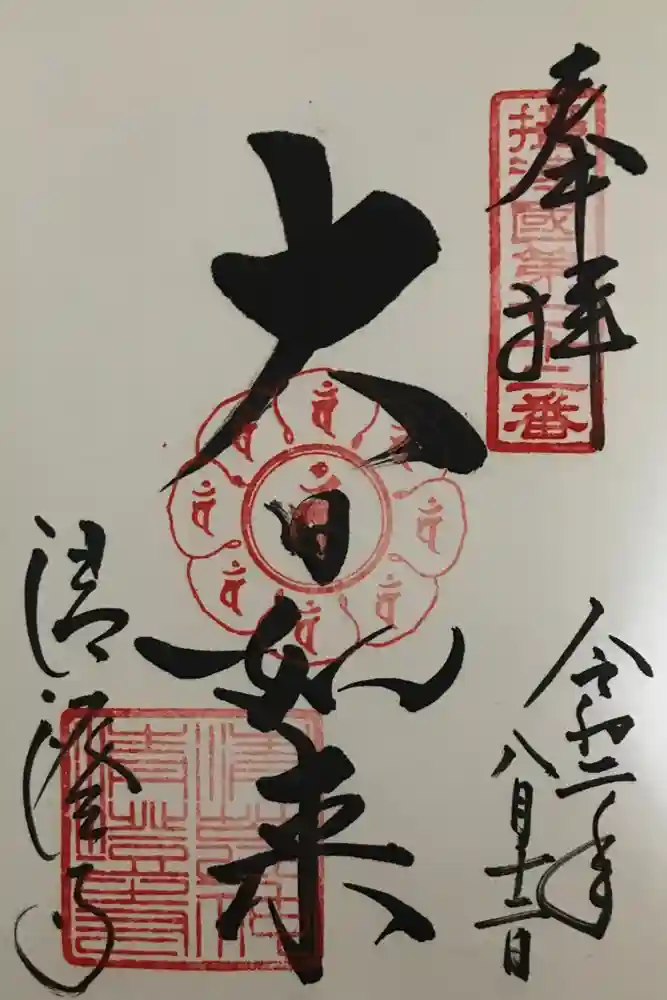 奉拝
攝津國第七十二番
大日如来
清澄寺
令和二年
八月十二日